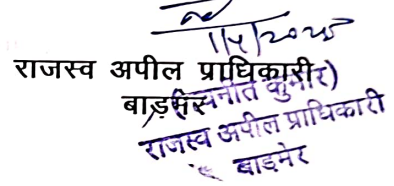 1/5/2025
राजस्व अपील प्राधिकारी
बाड़मेर
नीत कुमार)
राजस्व अपील प्राधिकारी
बाड़मेर